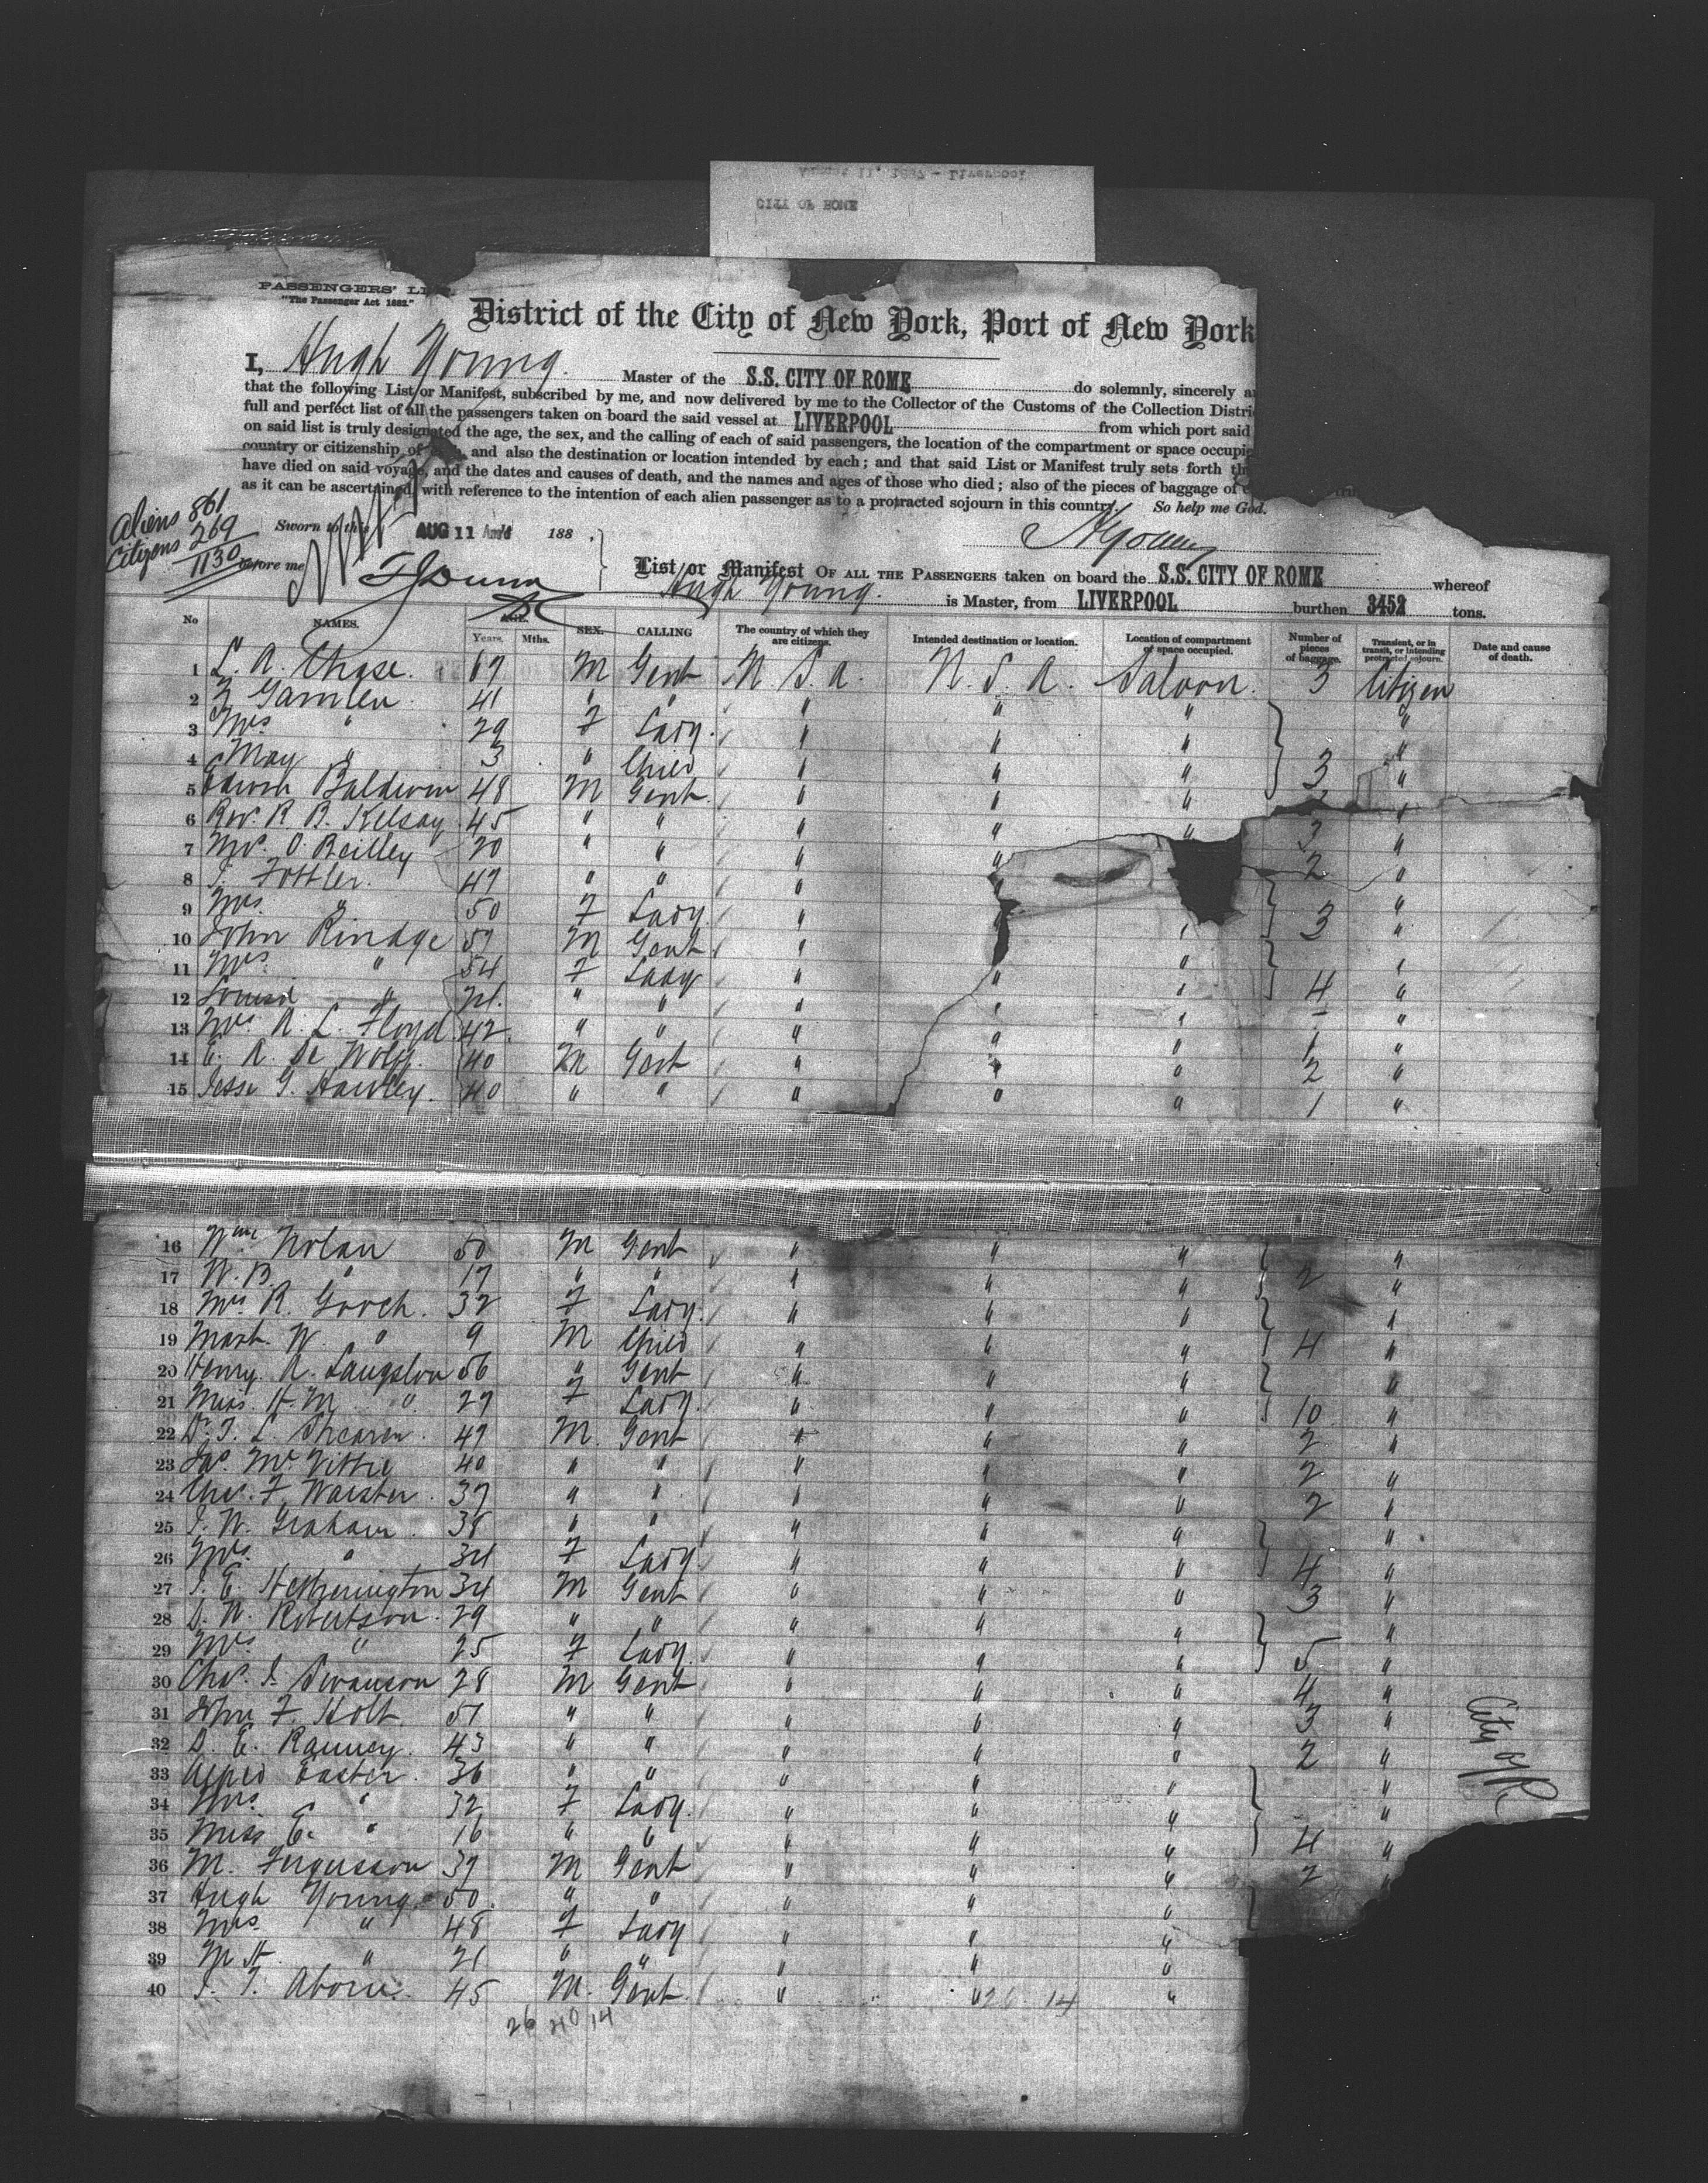 August 11, 1887 - Liverpool
CITY OF ROME
PASSENGERS'
"The Passenger Act 1882."
District of the City of New York, Port of New York
I, Hugh Young. Master of the S.S. CITY OF ROME do solemnly, sincerely
that the following List or Manifest, subscribed by me, and now delivered by me to the Collector of the Customs of the Collection
full and perfect list of all the passengers taken on board the said vessel at LIVERPOOL from which port said
on said list is truly designated the age, the sex, and the calling of each of said passengers, the location of the compartment or space
country or citizenship of and also the destination or location intended by each; and that said List or Manifest truly sets forth
have died on said voyage, and the dates and causes of death, and the names and ages of those who died; also of the pieces of baggage of
as it can be ascertained, with reference to the intention of each alien passenger as to a protracted sojourn in this country. So help me God.
Aliens 861
Citizens 269
1130
Sworn to this AUG 11 188 .
HYoung
before me
List or Manifest OF ALL THE PASSENGERS taken on board the S.S. CITY OF ROME whereof
Hugh Young. is Master, from LIVERPOOL burthen 3452 tons.
No NAMES. AGE. Years. Mths. SEX. CALLING The country of which they are citizens. Intended destination or location. Location of compartment of space occupied. Number of pieces of baggage. Transient, or in transit, or intending protracted sojourn. Date and cause of death.
1 L. A. Chase. 67 M Gent U.S.A. U.S.A. Saloon. 3 Citizen
2 Gamlen. 41 " " " " " "
3 Mrs " 29 F Lady. " " " "
4 May " 3 " Child " " " 3 "
5 Edwin Baldwin 48 M Gent. " " " "
6 Rev. R. B. Kelsay 45 " " " " " 3 "
7 Mr. O. Reilley 20 " " " " 2 "
8 Fottler. 47 " " " "
9 Mrs. " 50 F Lady. " " 3 "
10 John Rindge 57 M Gent " " "
11 Mrs. " 54 F Lady " " " "
12 Louisa " 21. " " " " " 4 "
13 Mrs A. L. Floyd 42. " " " " " 1 "
14 E. A. De Wolf. 40 M Gent " " " 2 "
15 Jesse G. Hawley. 40 " " " " " 1 "
16 Wm Nolan 50 M Gent " " " "
17 W. B. " 17 " " " " " 2 "
18 Mrs R. Gooch. 32 F Lady. " " " "
19 Mast. W. " 9 M Child " " " 4 "
20 Henry A. Langslow 56 " Gent " " " "
21 Miss. H. M. " 27 F Lady. " " " 10 "
22 Dr. T. L. Shearer. 47 M. Gent " " " 2 "
23 Jas. Mc Vittie 40 " " " " " 2 "
24 Chs. F. 37 " " " " " 2 "
25 J. W. Graham. 38 " " " " " "
26 Mrs. " 34 F Lady " " " 4 "
27 J. E. Hetherington 34 M Gent " " " 3 "
28 D. W. Robertson. 29 " " " " " "
29 Mrs " 25 F Lady. " " " 5 "
30 Chs. J. Swanson 28 M Gent " " " 4 "
31 John F. Holt. 51 " " " " " 3 "
32 D. E. Ranney. 43 " " " " " 2 "
33 Alfred Easter. 36 " " " " " "
34 Mrs. " 32 F Lady. " " " "
35 Miss E. " 16 " " " " " 4 "
36 M. Fergusson 37 M Gent " " " 2 "
37 Hugh Young 50. " " " " "
38 Mrs. " 48 F Lady " " "
39 M H. " 21 " " " " "
40 45 M. Gent. " " "
26 14
26 40 14
City of R